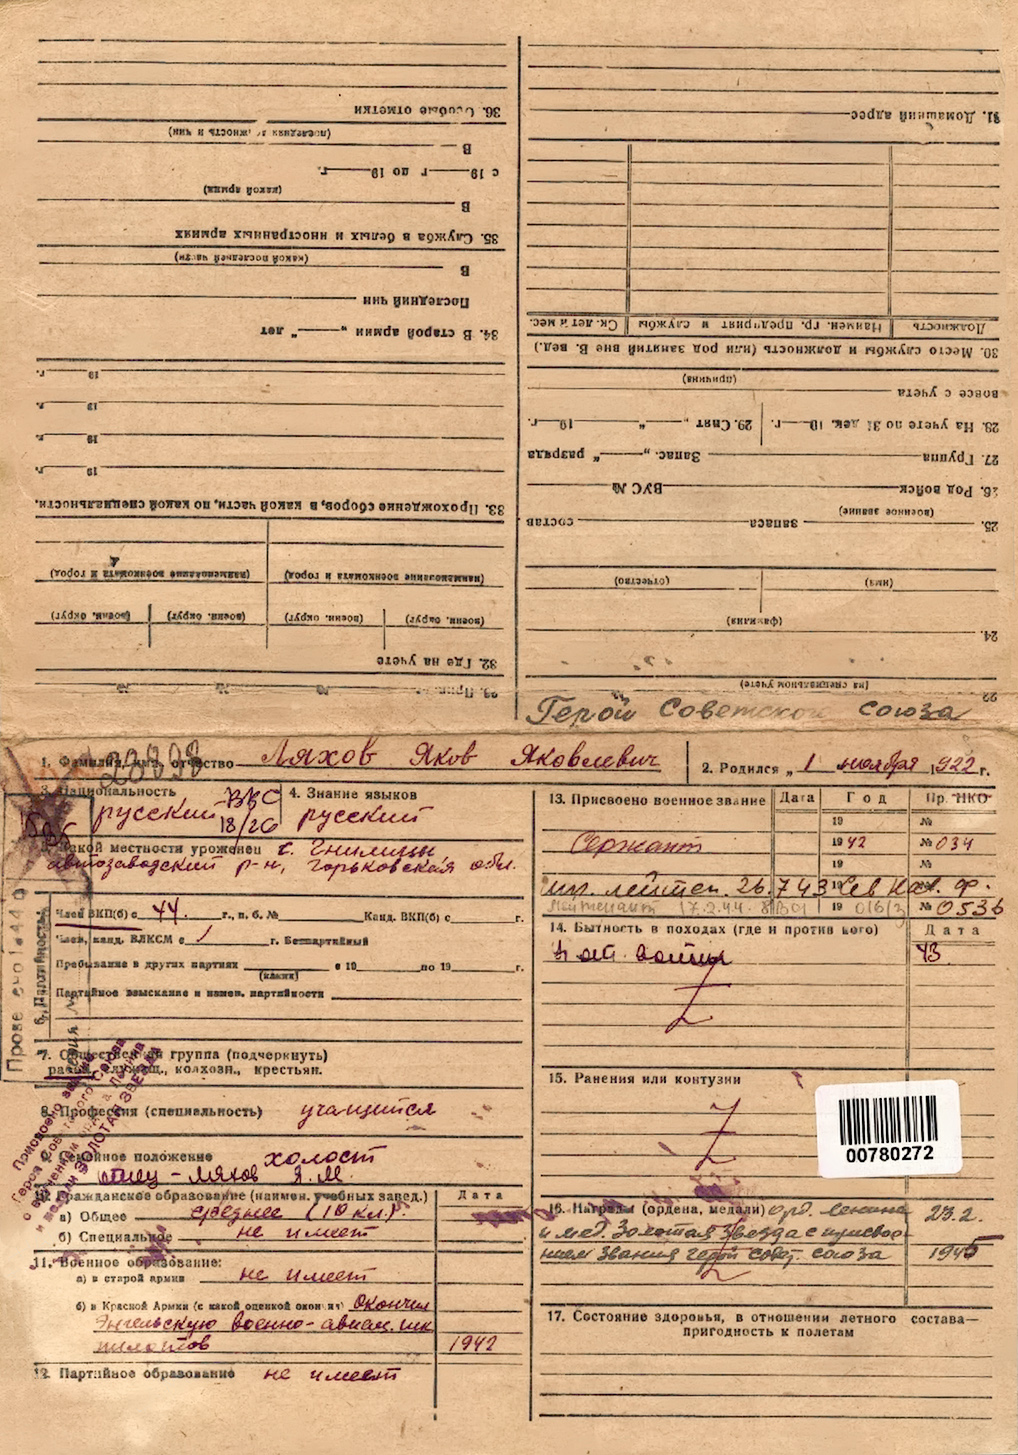 36. Особые отметки
(последняя должность и чин)
В
с 19 г до 19 г.
(какой армия)
В
35. Служба в белых и иностранных армиях
(какой последней части)
В
Последний чин
34. В старой армии „ “ лет
19 г.
19 г.
19 г.
19 г.
33. Прохождение сборов, в какой части, по какой специальности.
(наименование военкомата и город) (наименование военкомата и город)
(военн. округ) (военн. округ) (военн. округ) (военн. округ)
32. Где на учете
31. Домашний адрес
Должность Наимен. гр. предприят и службы Ск. лет и мес.
30. Место службы и должность (или род занятий вне В. вед.)
(причина)
вовсе с учета
28. На учете по 31 дек. 19 г. 29. Снят „ “ 19 г.
27. Группа Запас. „ “ разряда
26. Род войск ВУС №
(военное звание)
25. запаса состав
(имя) (отчество)
(фамилия)
24.
(на специальном учете)
Герой Советского Союза
1. Фамилия, имя, отчество Ляхов Яков Яковлевич
2. Родился „ 1 ноября 1922 г.
3. Национальность русский
ВВС
18/26
4. Знание языков русский
5. Какой местности уроженец с. Гнилицы
автозаводский р-н, Горьковская обл.
6. Партийность
Член ВКП(б) с 44. г., п. б. № Канд. ВКП(б) с г.
Член, канд. ВЛКСМ с г. Беспартийный
Пребывание в других партиях с 19 по 19 г.
(каких)
Партийное взыскание и измен. партийности
7. Общественная группа (подчеркнуть)
рабоч., служащ., колхозн., крестьян.
8. Профессия (специальность) учащийся
9. Семейное положение холост
отец - Ляхов Я. М.
10. Гражданское образование (наимен. учебных завед.) Дата
а) Общее среднее (10 кл.).
б) Специальное не имеет
11. Военное образование:
а) в старой армии не имеет
б) в Красной Армии (с какой оценкой окончил) Окончил
Энгельскую военно-авиац. шк
пилотов 1942
12. Партийное образование не имеет
Присвоено звание
Героя Советского Союза
с вручением ордена Ленина
и медали ЗОЛОТАЯ ЗВЕЗДА
13. Присвоено военное звание Дата Год Пр. НКО
19 №
Сержант 1942 № 034
19 №
мл. лейтен. 26.7.43
Лейтенант 17.2.44. 19 № 053б
14. Бытность в походах (где и против кого) Дата
в от. войны 43
15. Ранения или контузии
00780272
16. Награды (ордена, медали) орд. Ленина 23.2.
и мед. Золотая Звезда с присвое-
нием звания герой совет. союза 1945
17. Состояние здоровья, в отношении летного состава—
пригодность к полетам